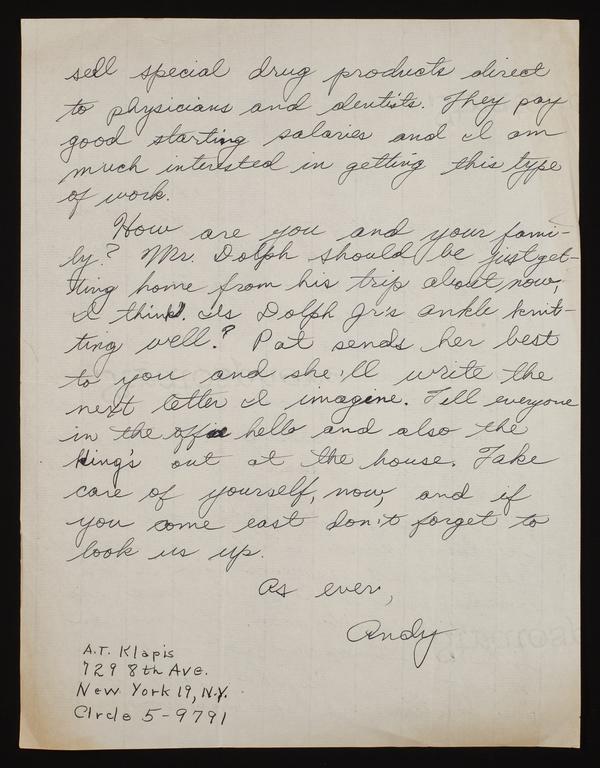 sell special drug products direct
to physicians and dentists. They pay
good starting salaries and I am
much interested in getting this type
of work.
How are you and your fami-
ly? Mr. Dolph should be just get-
ting home from his trip about now,
I think. Is Dolph Jr's ankle knit-
ting well? Pat sends her best
to you and she'll write the
next letter I imagine. Tell everyone
in the office hello and also the
King's out at the house. Take
care of yourself, now, and if
you come east don't forget to
look us up.
As ever,
Andy
A.T. Klapis
729 8th Ave.
New York 19, N.Y.
CIrcle 5-9791